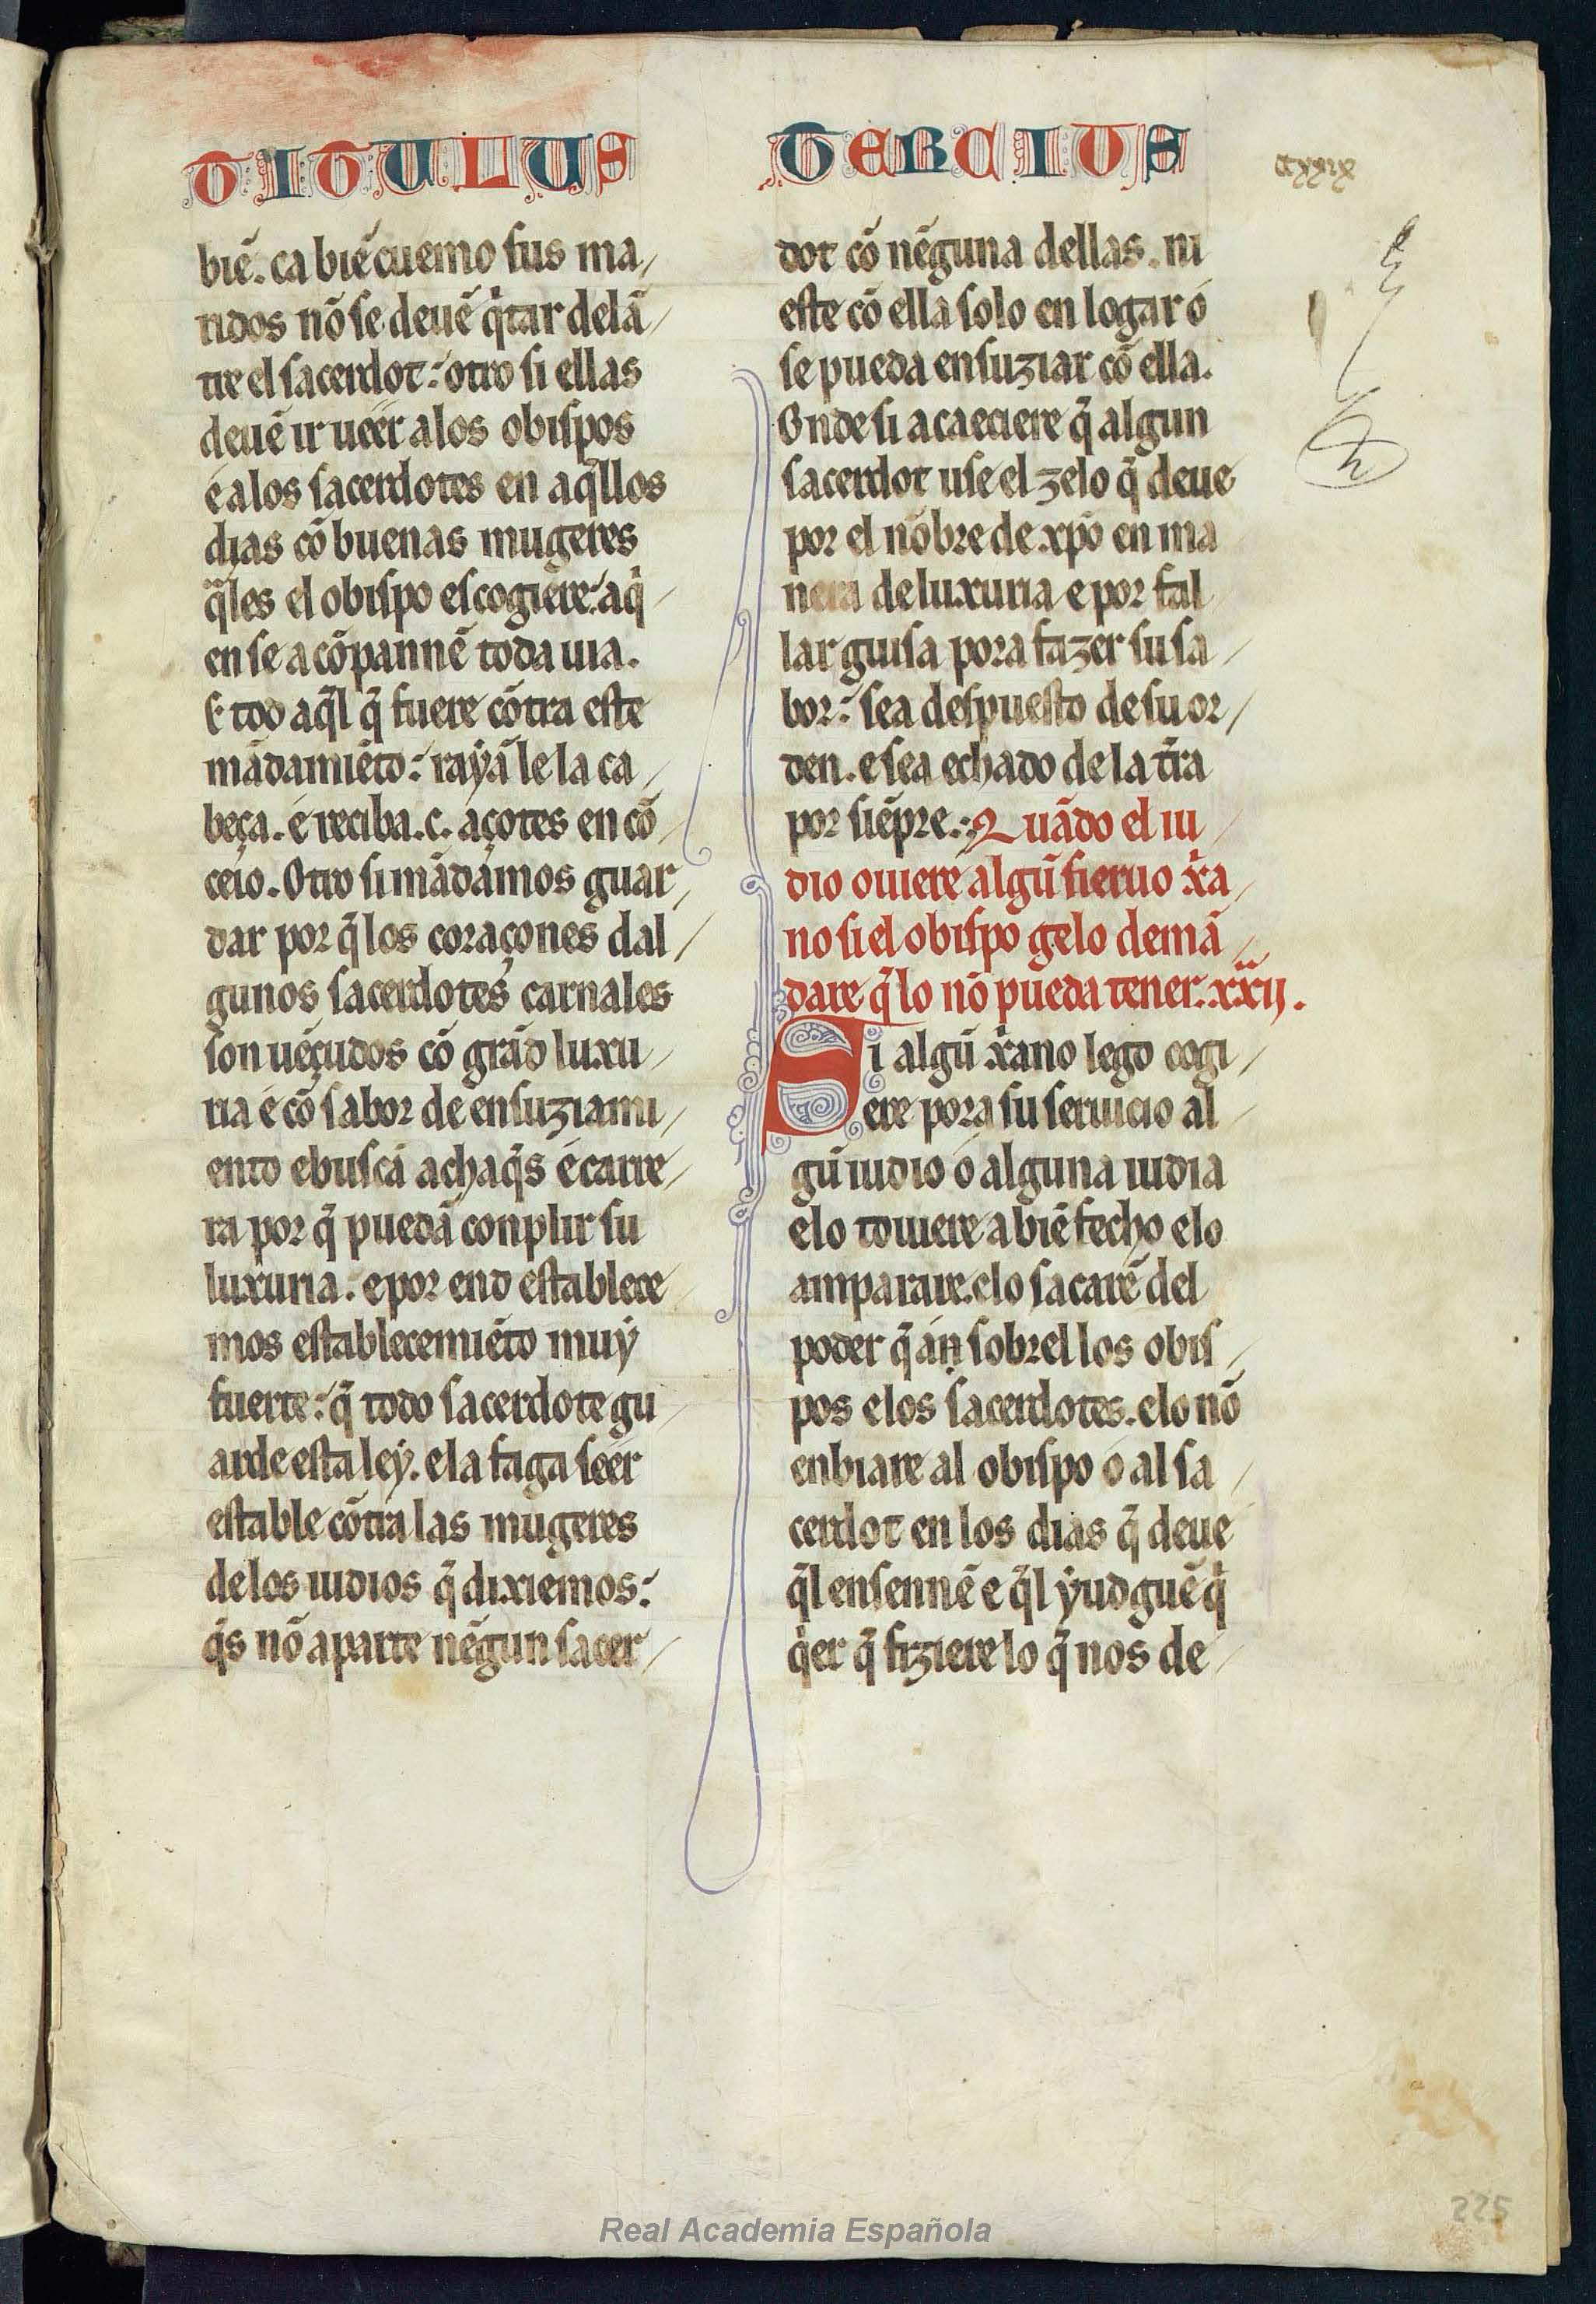 TITULUS TERCIUS
bie᷈. ca bie᷈ cuemo sus ma/
ridos no᷈ se deue᷈ q̇tar dela᷈/
tre el sacerdot: otro si ellas
deue᷈ ir ueér a los obispos
é a los sacerdotes en aq᷈llos
dias co᷈ buenas mugeres
q̈les el obispo escogiere: aq̇/
en se aco᷈panne᷈ toda uia.
E tod aq᷈l q᷈ fuere co᷈tra este
ma᷈damie᷈to: raẏa᷈ le la ca/
beça. é reciba .c. açotes en co᷈/
ceio. Otro si ma᷈damos guar/
dar por q᷈ los coraçones dal/
gunos sacerdotes carnales
son ue᷈çudos co᷈ gra᷈d luxu/
ria é co᷈ sabor de ensuziami/
ento e busca᷈ achaq᷈s é carre/
ra por q᷈ pueda᷈ conplir su
luxuria. e por end establece/
mos establecemie᷈to muẏ
fuerte: q᷈ todo sacerdote gu/
arde esta leẏ. e la faga seér
estable co᷈tra las mugeres
de los iudios q᷈ dixiemos:
q̇s no᷈ aparte ne᷈gun sacer/
dot co᷈ ne᷈guna dellas. ni
este co᷈ ella solo en logar ó
se pueda ensuziar co᷈ ella.
Onde si acaeciere q᷈ algun
sacerdot use el zelo q᷈ deue
por el no᷈bre de xp᷈o en ma
nera de luxuria e por fal
lar guisa pora fazer su sa/
bor: sea despuesto de su or/
den. e sea echado de la t᷈ra
por sie᷈pre. Qua᷈do el iu/
dio ouiere algu᷈ sieruo xá/
no si el obispo gelo dema᷈/
dare q᷈ lo no᷈ pueda tener. xxij.
Si algu᷈ xáno lego cogi/
ere pora su seruicio al/
gu᷈ iudio ó alguna iudia
e lo touiere a bie᷈ fecho e lo
amparare. e lo sacare᷈ del
poder q᷈ án sobrel los obis/
pos e los sacerdotes. e lo no᷈
enbiare al obispo ó al sa/
cerdot en los dias q᷈ deue
q᷈l ensenne᷈ e q᷈l ẏudgue᷈ q̇
q̇er q᷈ fiziere lo q᷈ nos de/
225
Real Academia Española